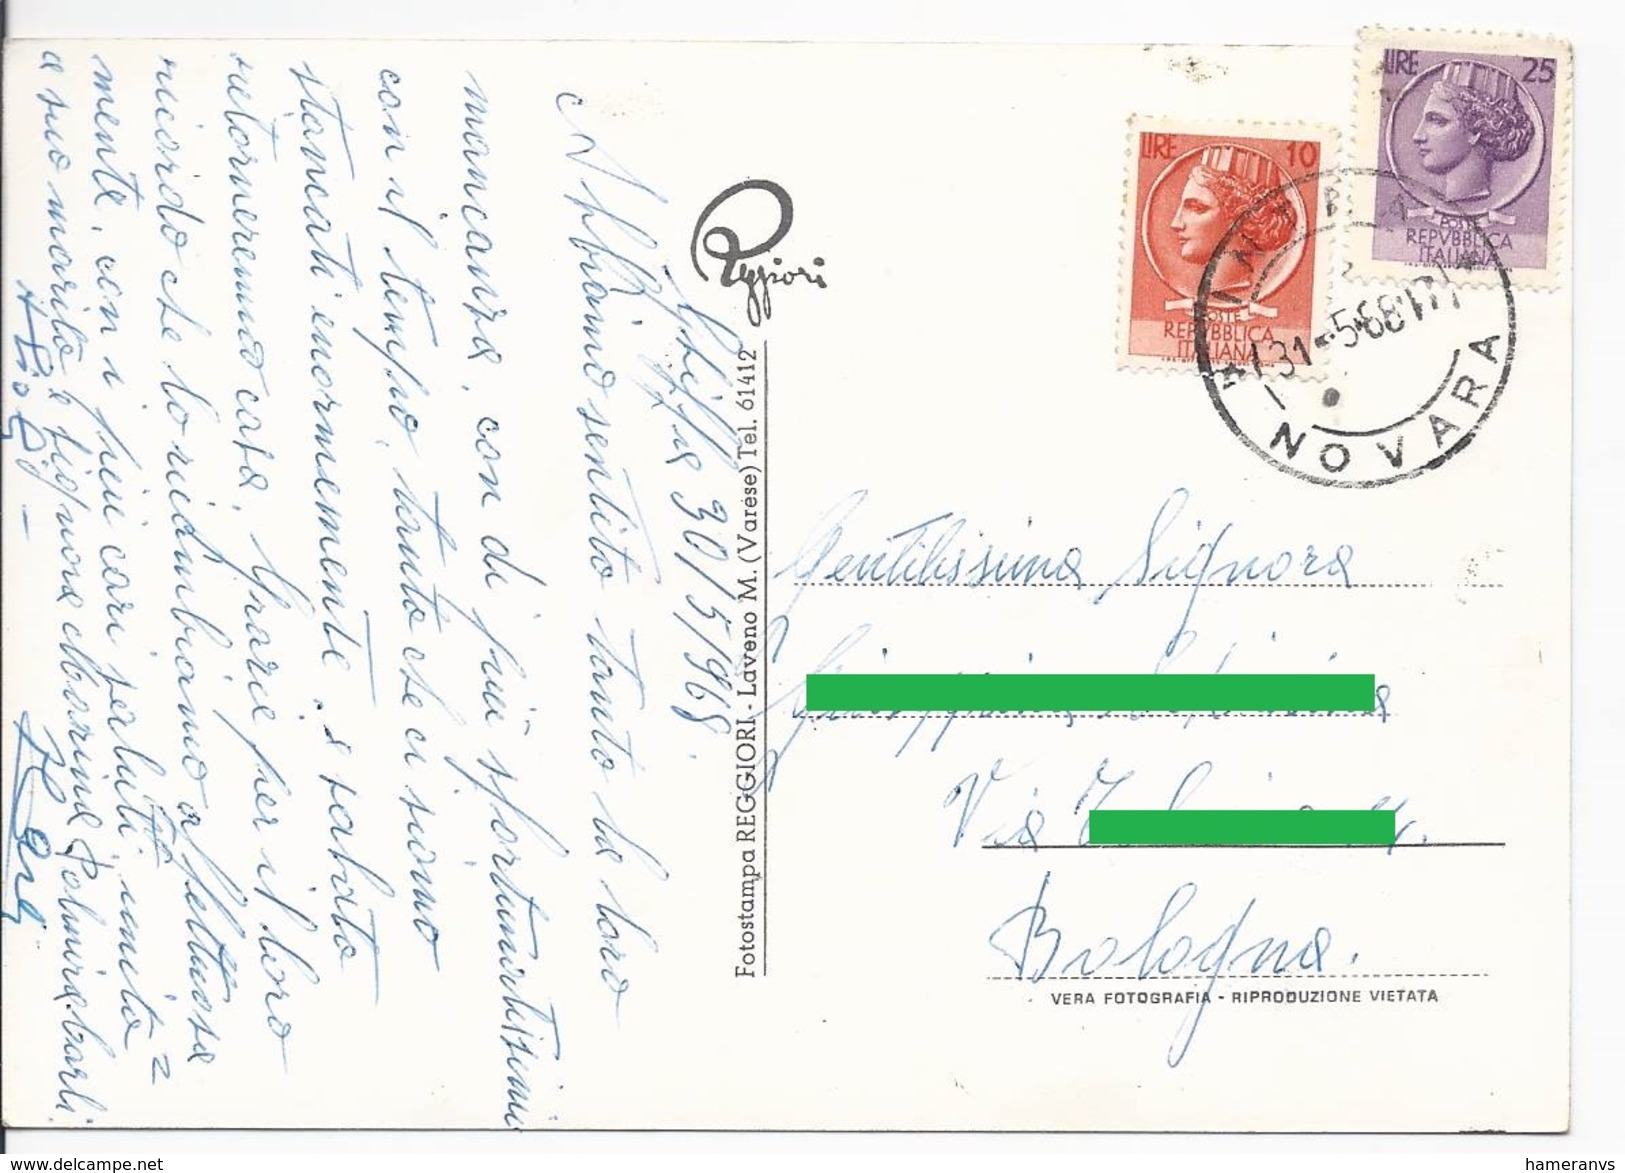 Ghiffa 30/5/968.
Abbiamo sentito tanto la loro
mancanza, con di più sfortunatissimi
con il tempo, tanto che ci siamo
stancati enormemente, e sabato
ritorneremo a casa. Grazie per il loro
ricordo che lo ricambiamo affettuosa
mente, con i più cari saluti, unita
a suo marito e signora
Reggiori
Fotostampa REGGIORI - Laveno M. (Varese) Tel. 61412
LIRE 10
POSTE
REPVBBLICA
ITALIANA
LIRE 25
POSTE
REPVBBLICA
ITALIANA
INTRA
31-5-68 17
NOVARA
Gentilissima Signora
Via
Bologna.
VERA FOTOGRAFIA - RIPRODUZIONE VIETATA
www.delcampe.net
hameranvs